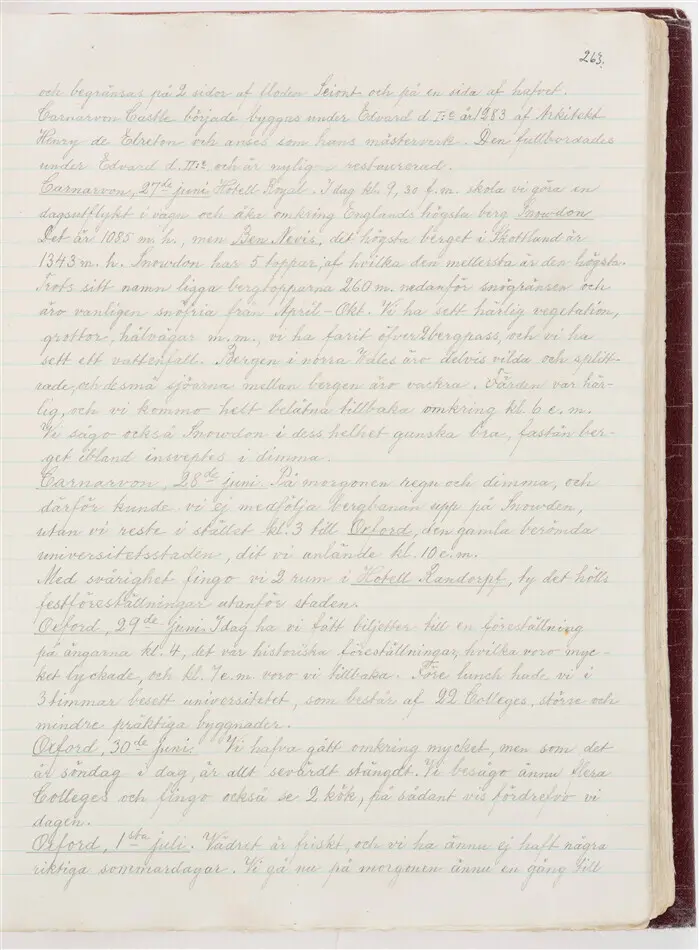 263.
och begränsas på 2 sidor af floden Seiont och på en sida af hafvet.
Carnarvon Castle började byggas under Edvard d I:e år 1283 af Arkitekt
Henry de Elreton och anses som hans mästerverk. Den fullbordades
under Edvard d. II:e, och är nyligen restaurerad.
Carnarvon, 27de juni Hotell Royal. I dag kl. 9,30 f.m. skola vi göra en
dagsutflykt i vagn och åka omkring Englands högsta berg Snowdon
Det är 1085 m. h., men Ben Nevis, det högsta berget i Skottland är
1343 m. h. Snowdon har 5 toppar, af hvilka den mellersta är den högsta.
Trots sitt namn ligga bergtopparna 260 m. nedanför snögränsen och
äro vanligen snöfria från April-Okt. Vi ha sett härlig vegetation,
grottor, hålvägar m.m., vi ha farit öfver 2 bergpass, och vi ha
sett ett vattenfall. Bergen i norra Wales äro delvis vilda och splitt-
rade, och de små sjöarna mellan bergen äro vackra. Färden var här-
lig, och vi kommo helt belåtna tillbaka omkring kl. 6 e. m.
Vi sågo också Snowdon i dess helhet ganska bra, fastän ber-
get ibland insveptes i dimma.
Carnarvon, 28de juni På morgonen regn och dimma, och
därför kunde vi ej medfölja bergbanan upp på Snowden,
utan vi reste i stället kl. 3 till Oxford, den gamla berömda
universitetsstaden, dit vi anlände kl. 10 e. m.
Med svårighet fingo vi 2 rum i Hotell Randorpf, ty det hölls
festföreställningar utanför staden.
Oxford, 29de juni. I dag ha vi fått biljetter till en föreställning
på ängarna kl. 4, det var historiska föreställningar, hvilka voro myc-
ket lyckade, och kl. 7 e.m. voro vi tillbaka. Före lunch hade vi i
3 timmar besett universitetet, som består af 22 Colleges, större och
mindre präktiga byggnader.
Oxford, 30de juni. Vi hafva gått omkring mycket, men som det
är söndag i dag, är allt sevärdt stängdt. Vi besågo ännu flera
Colleges och fingo också se 2 kök, på sådant vis fördrefvo vi
dagen.
Oxford, 1sta juli. Vädret är friskt, och vi ha ännu ej haft några
riktiga sommardagar. Vi gå nu på morgonen ännu en gång till